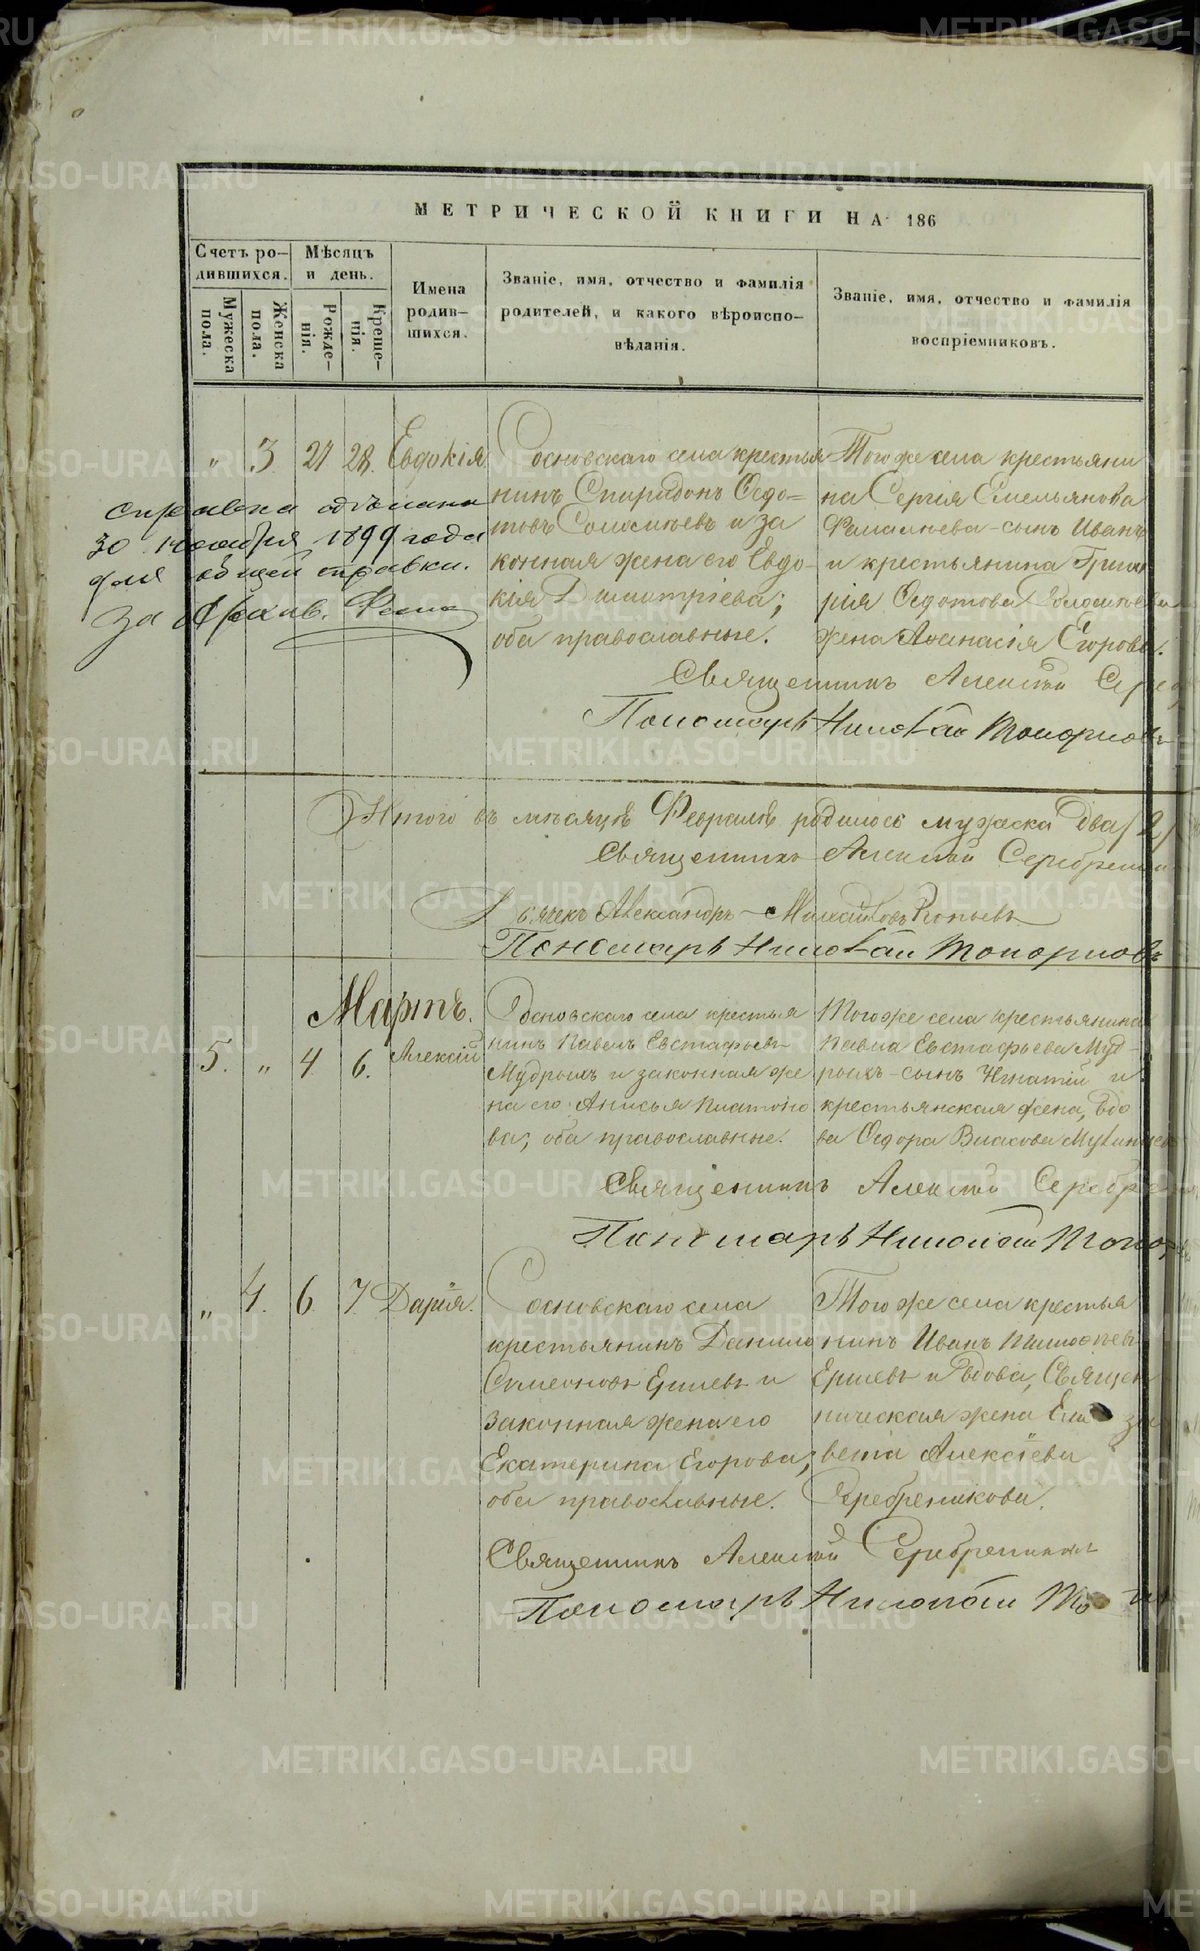 МЕТРИЧЕСКОЙ КНИГИ НА 186
Счетъ ро-
дившихся.
Мѣсяцъ
и день.
Мужеска
пола.
Женска
пола.
Рожде-
нія.
Креще-
нія.
Имена
родив-
шихся.
Званіе, имя, отчество и фамилія
родителей, и какого вѣроиспо-
вѣданія.
Званіе, имя, отчество и фамилія
воспріемниковъ.
" 3 27 28. Евдокія
Сосновскаго села крестья
нинъ Спиридонъ Ѳедо-
товъ и за
конная жена его Евдо-
кія Димитріева;
оба православные.
Того же села крестьяни
на Сергія Емельянова
сынъ Иванъ
и крестьянина Григо
рія Ѳедотова
жена Аѳанасія Егорова.
справка
30 ноября 1899 года
для общей справки.
За Архив.
Священникъ Алексѣй
Пономарь Николай Топорковъ
Итого въ мѣсяцѣ Февралѣ родилось мужска два (2)
Священникъ Алексѣй
Дьячекъ Александръ Михайловъ
Пономарь Николай Топорковъ
Мартъ.
5. " 4 6. Алексій
Сосновскаго села крестья
нинъ Павелъ Евстафьевъ
Мудрыхъ и законная же
на его Анисья Платоно
ва; оба православные.
Того же села крестьянина
Павла Евстафьева Муд-
рыхъ-сынъ Игнатій и
крестьянская жена, вдо
ва Ѳедора Власова
Священникъ Алексѣй
Пономарь Николай
" 4. 6. 7 Дарія.
Сосновскаго села
крестьянинъ Данило
Симеоновъ Ершевъ и
законная жена его
Екатерина Егорова;
оба православные.
Того же села крестья
нинъ Иванъ
Ершевъ и вдова, Священ
ническая жена Ели за
вета Алексѣева
Серебреникова.
Священникъ Алексѣй Серебрениковъ
Пономарь Николай
METRIKI.GASO-URAL.RU